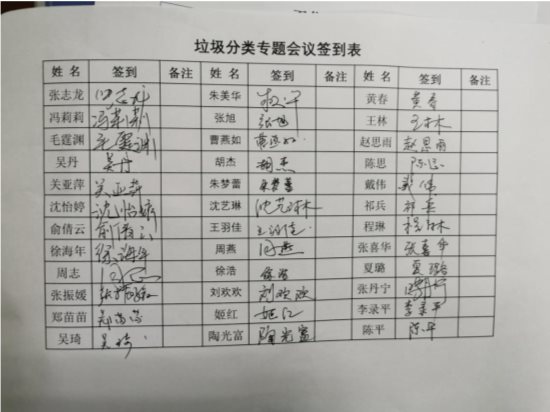 垃圾分类专题会议签到表
姓名 签到 备注 姓名 签到 备注 姓名 签到 备注
张志龙 朱美华 黄春 黄春
冯莉莉 冯莉莉 张旭 张旭 王林 王林
毛霆渊 毛霆渊 曹燕如 曹燕如 赵思雨 赵思雨
吴丹 吴丹 胡杰 胡杰 陈思 陈思
关亚萍 关亚萍 朱梦蕾 朱梦蕾 戴伟 戴伟
沈怡婷 沈怡婷 沈艺琳 沈艺琳 祁兵 祁兵
俞倩云 俞倩云 王羽佳 王羽佳 程琳 程琳
徐海年 徐海年 周燕 周燕 张喜华 张喜华
周志 徐浩 徐浩 夏璐 夏璐
张振媛 张振媛 刘欢欢 刘欢欢 张丹宁
郑苗苗 郑苗苗 姬红 姬红 李录平 李录平
吴琦 吴琦 陶光富 陶光富 陈平 陈平